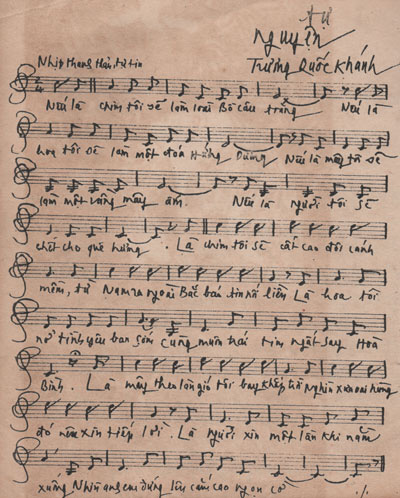 Tự
Nguyện
Nhịp thong thả, tự tin
Trương Quốc Khánh
Nếu là chim tôi sẽ làm loài Bồ câu trắng Nếu là
hoa tôi sẽ làm một đóa Hướng Dương Nếu là mây tôi sẽ
làm một vầng mây ấm. Nếu là người tôi sẽ
chết cho quê hương. Là chim tôi sẽ cất cao đôi cánh
mềm, từ Nam ra ngoài Bắc báo tin nối liền Là hoa tôi
nở tình yêu ban sớm cùng muôn trái tim ngất say Hoà
Bình. Là mây theo làn gió tôi bay khắp trời nghìn xưa oai hùng
đó nay xin tiếp lời. Là người xin một lần khi nằm
xuống Nhìn anh em đứng lên cắm cao ngọn cờ